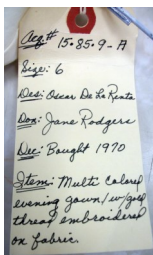 Acq# 15.85.9-A
Size: 6
Des: Oscar De La Renta
Don: Jane Rodgers
Dec: Bought 1970
Item: Multi Colored
evening gown/w/gold
thread embroidered
on fabric.